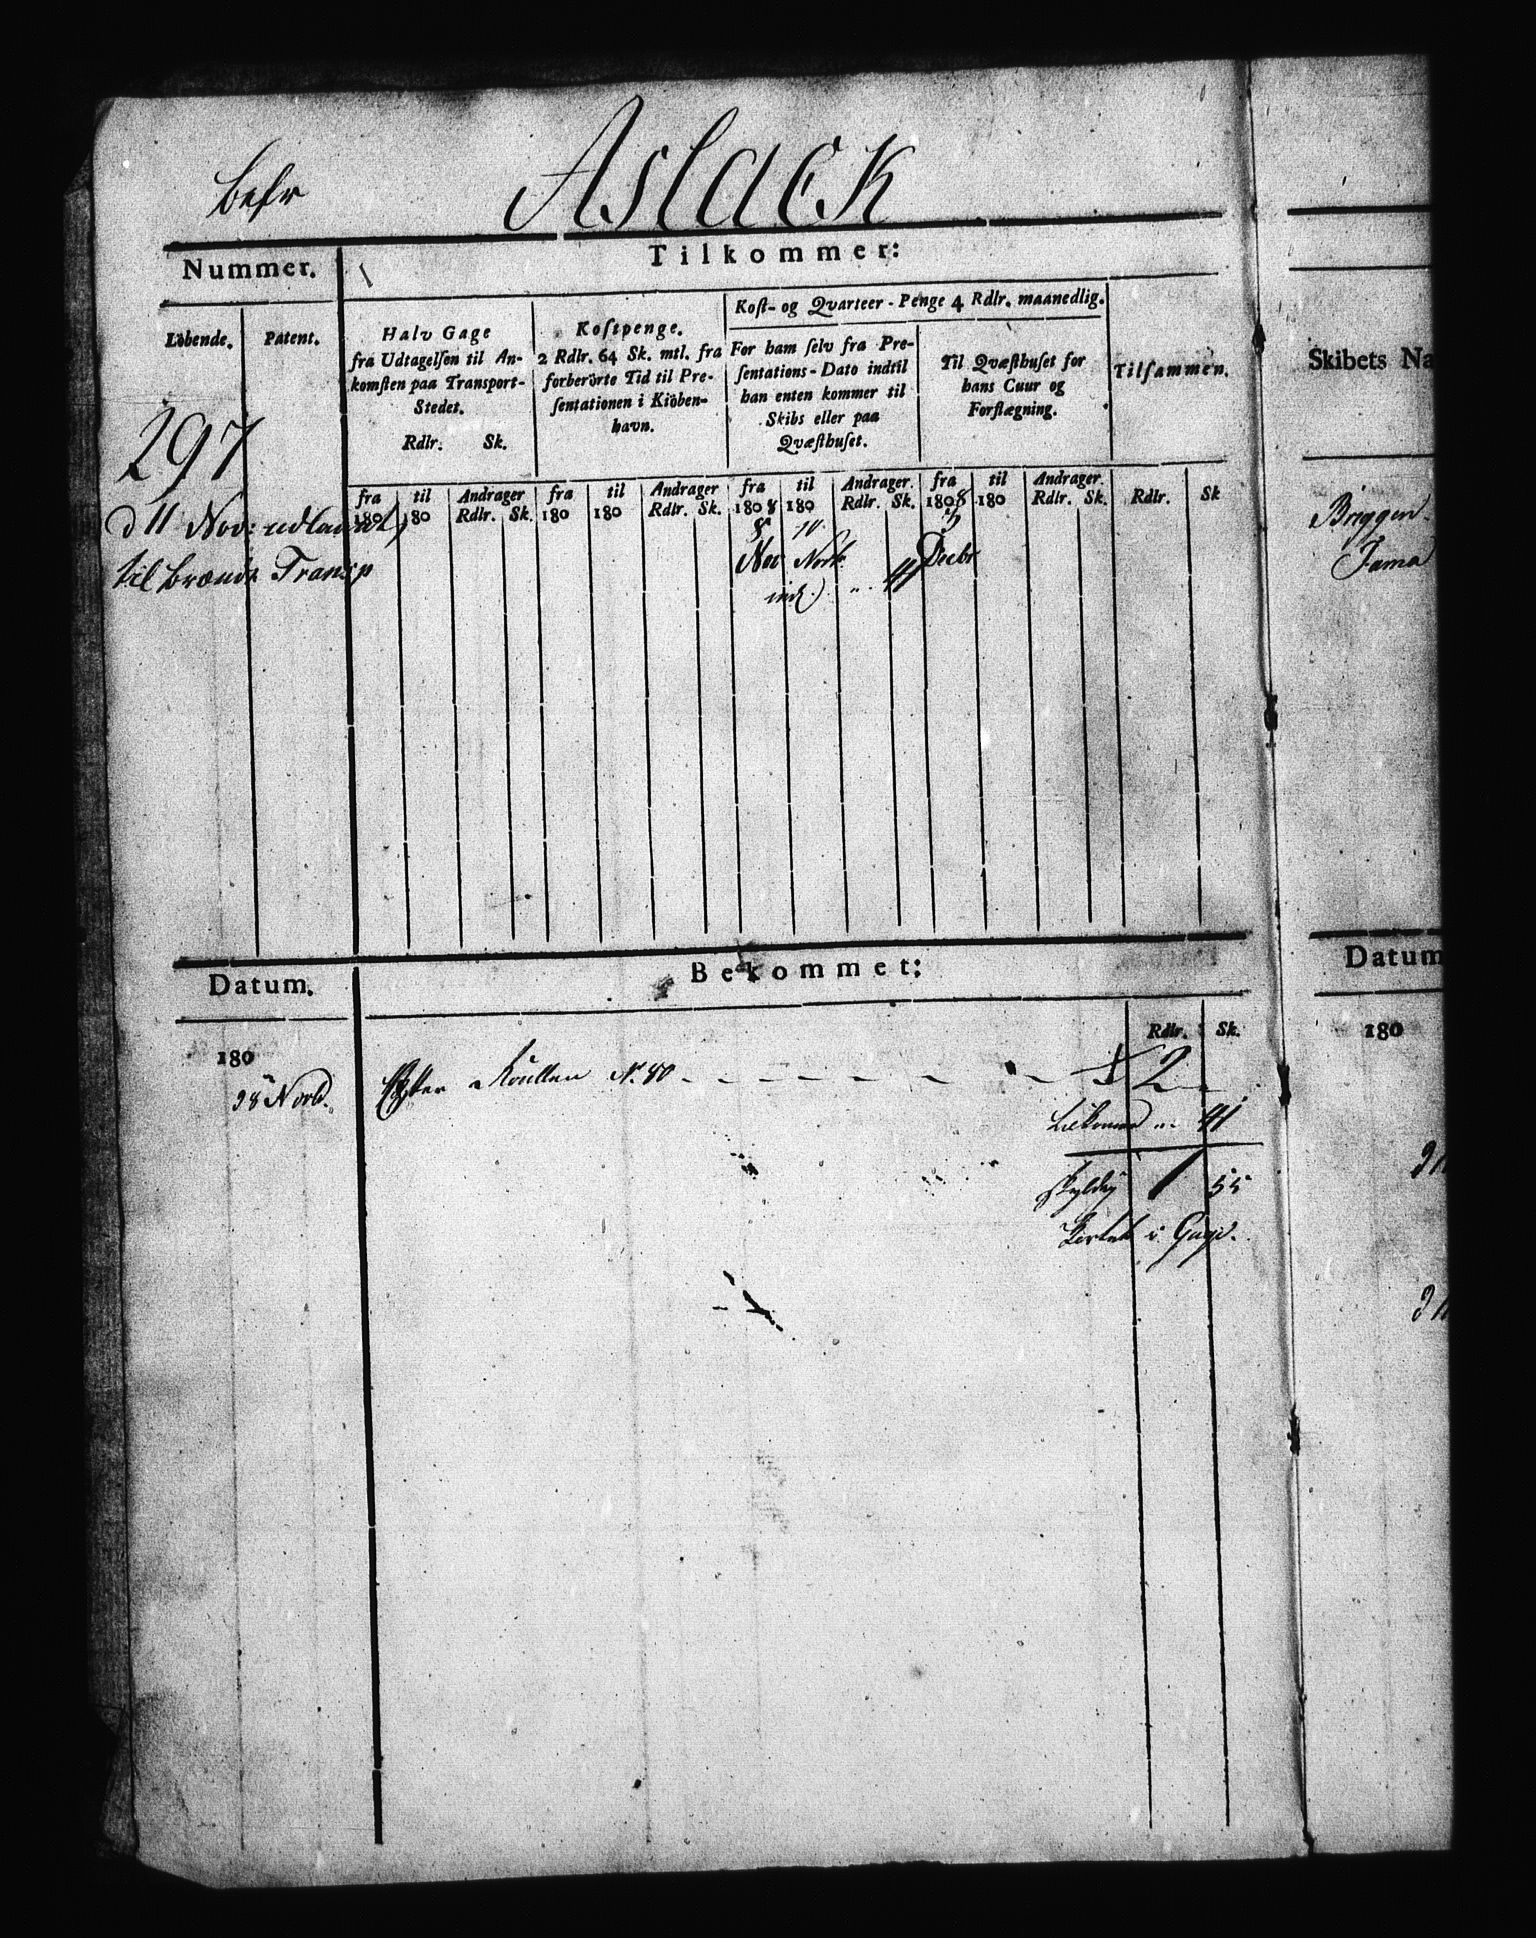 Befr Aslack
Nummer. Tilkommer:
Löbende. Patent.
Halv Gage
fra Udtagelsen til An-
komsten paa Transport-
Stedet.
Rdlr. Sk.
Kostpenge.
2 Rdlr. 64 Sk. mtl. fra
forberörte Tid til Pre-
sentationen i Kiöben-
havn.
Kost- og Qvarteer-Penge 4 Rdlr. maanedlig.
For ham selv fra Pre-
sentations-Dato indtil
han enten kommer til
Skibs eller paa
Qvæsthuset.
Til Qvæsthuset for
hans Cuur og
Forflægning.
Tilsammen.
fra til Andrager fra til Andrager fra til Andrager. fra til Andrager.
180 180 Rdlr. Sk. 180 180 Rdlr. Sk. 1808 180 Rdlr. Sk. 1808 180 Rdlr. Sk. Rdlr. Sk
297
d 11 Nov: udlaant
til Brænde Transp
8 10 3
Nov Novb. Decbr
incl. " 41
Datum. Bekommet:
Rdlr. Sk.
180
28 Novb. Efter Roullen No. 80 2
41
skyldig 1 55
i Gage.
Skibets Na
Briggen
Fama
Datum
180